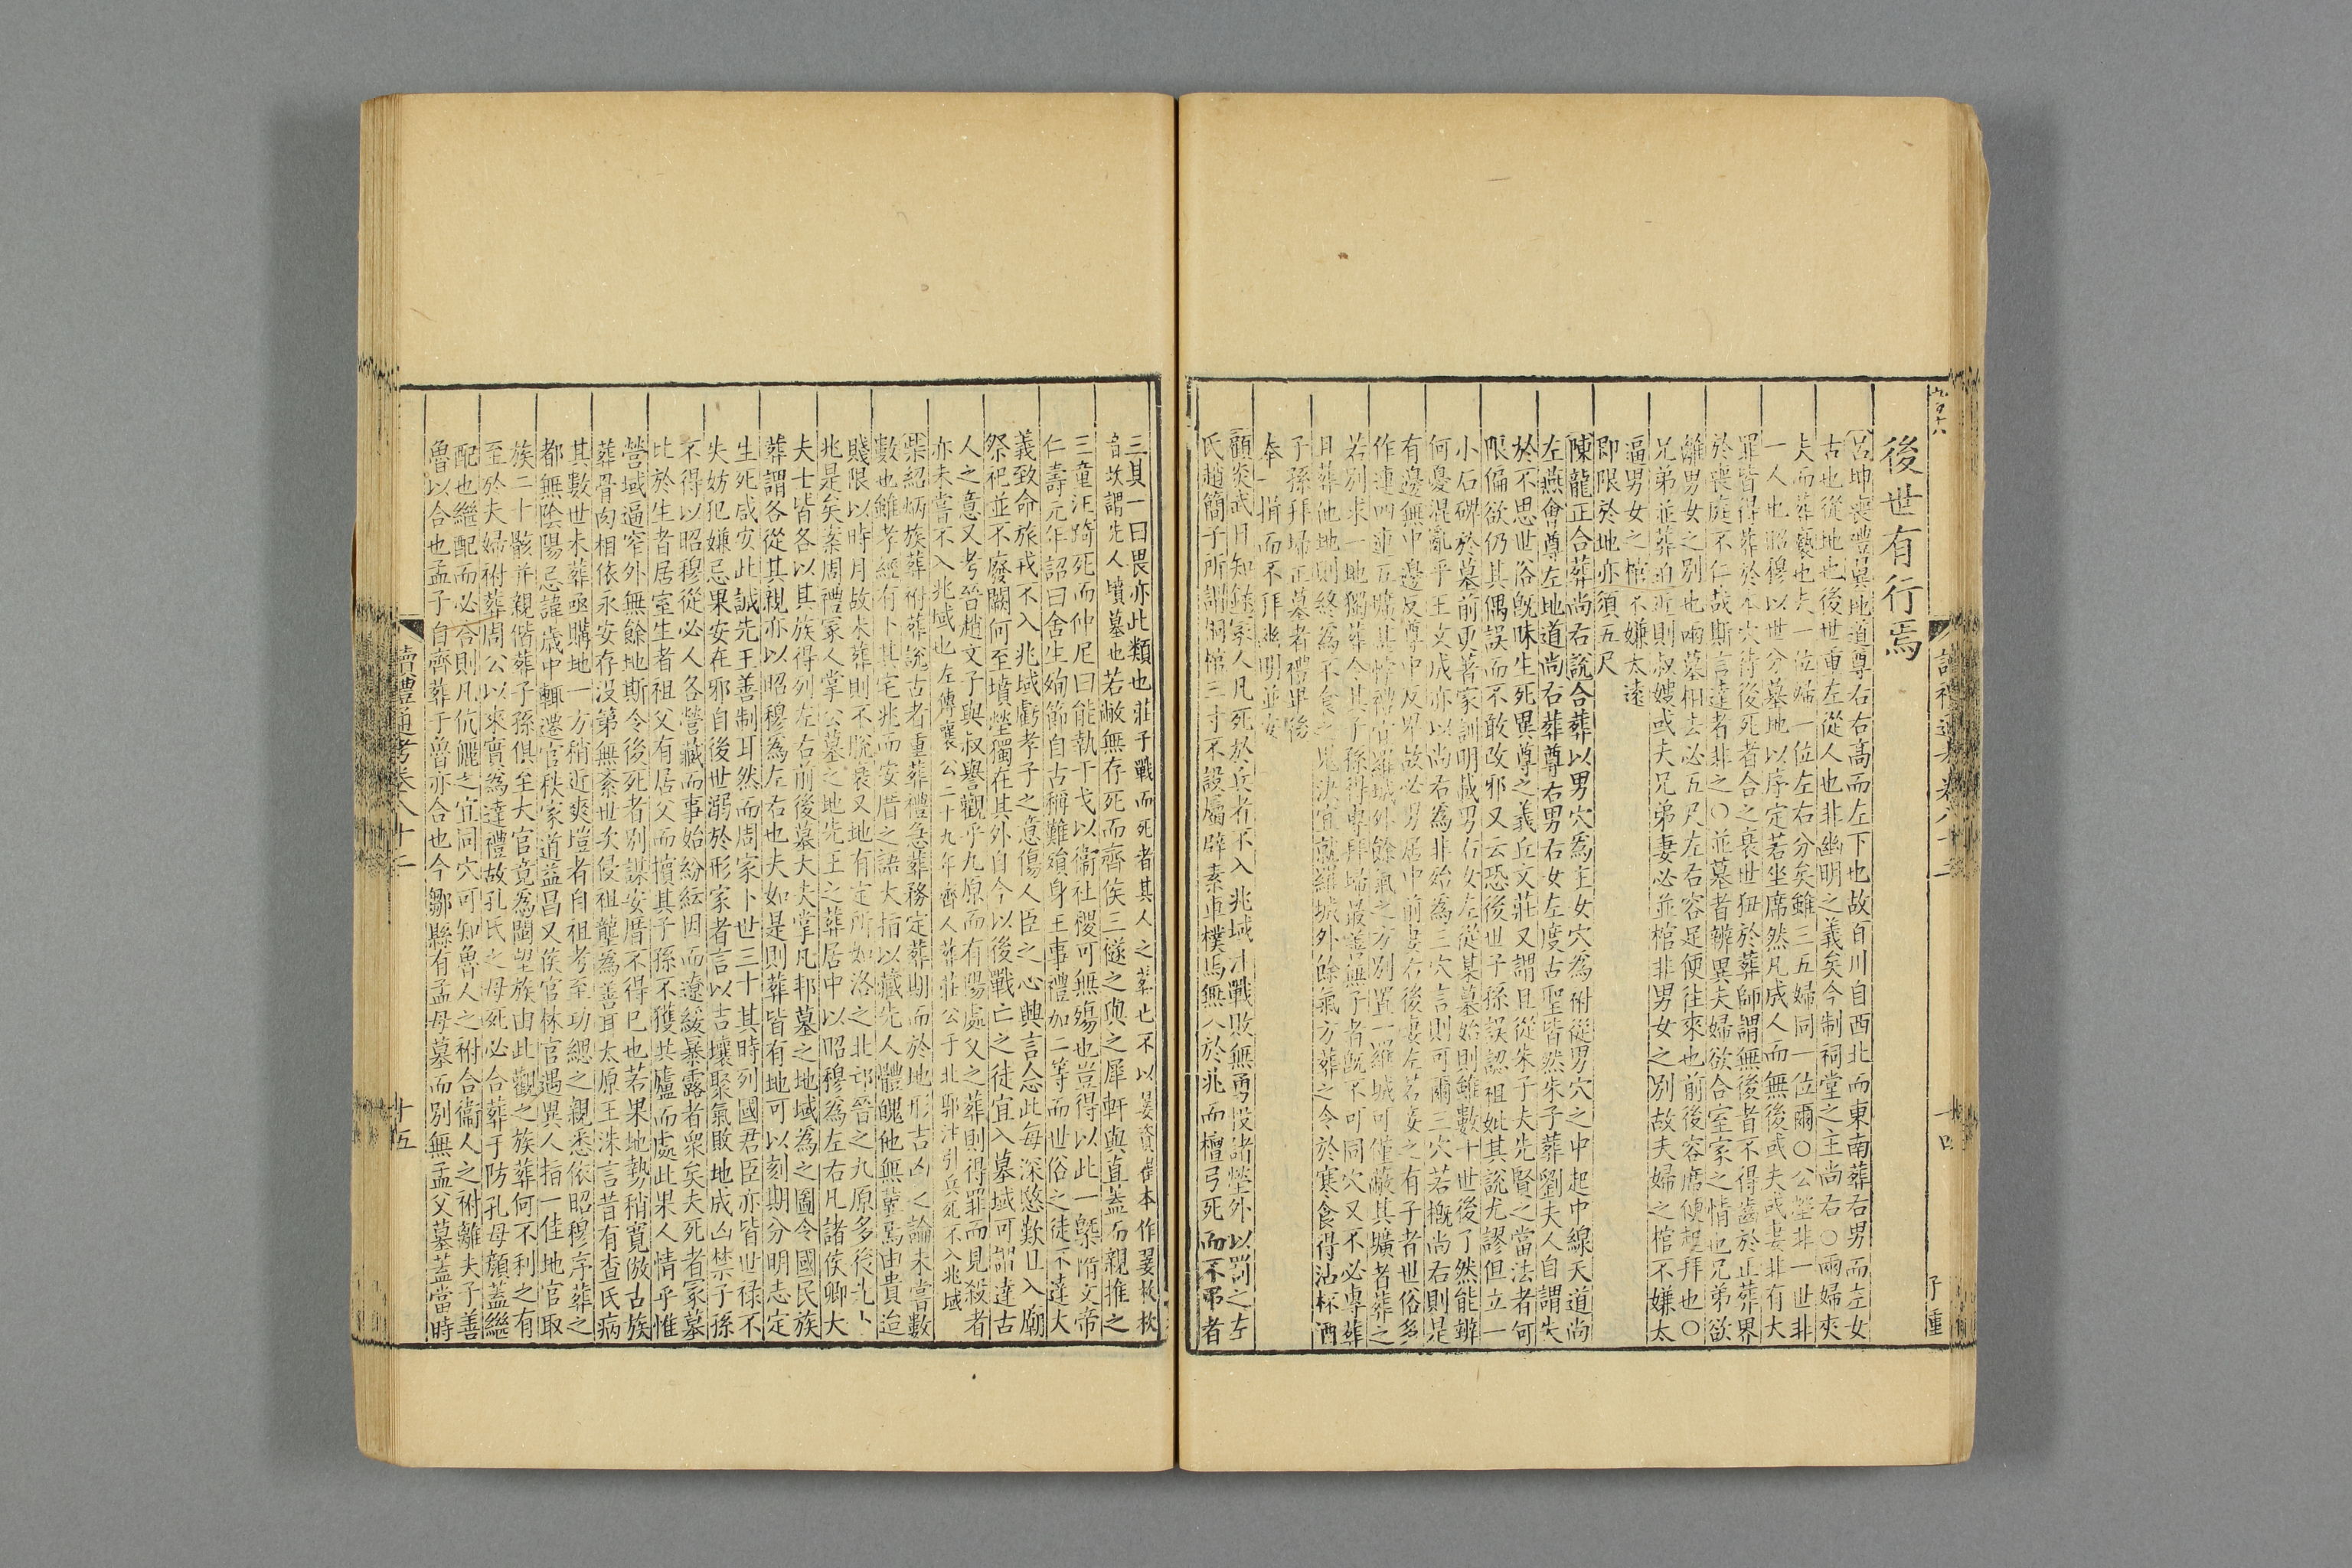 後世有行焉
呂坤喪禮翼地道尊右右高而左下也故百川自西北而東南葬右男而左女
古也從地也後世重左從人也非幽明之義矣今制祠堂之主尚右〇兩婦夾
夫而葬褻也夫一位婦一位左右分矣雖三五婦同一位爾〇公塋非一世非
一人也昭穆以世分墓地以序定若坐席然凡成人而無後或夫或妻非有大
罪皆得葬於本穴待後死者合之衰世狃於葬師謂無後者不得齒於正葬界
於喪庭不仁哉斯言達者非之〇並墓者辨異夫婦欲合室家之情也兄弟欲
離男女之別也兩墓相去必五尺左右容足便往來也前後容席便起拜也〇
兄弟並葬迫近則叔嫂或夫兄弟妻必並棺非男女之別故夫婦之棺不嫌太
逼男女之棺不嫌太遠
即限於地亦須五尺
陳龍正合葬尚右說合葬以男穴為主女穴為附從男穴之中起中線天道尚
左燕會尊左地道尚右葬尊右男右女左度古聖皆然朱子葬劉夫人自謂失
於不思世俗旣昧生死異尊之義丘文莊又謂且從朱子夫先賢之當法者何
限偏欲仍其偶誤而不敢改邪又云恐後世子孫誤認祖妣其說尤謬但立一
小石碑於墓前更著家訓明載男右女左從某墓始則雖數十世後了然能辨
何憂混亂乎王文成亦以尚右為非始為三穴言則可爾三穴若槪尚右則是
有邊無中邊反尊中反卑故必男居中前妻右後妻左若妾之有子者世俗多
作連四連五壙甚悖禮宜羅城外餘氣之方別置一羅城可僅蔽其壙者葬之
若別求一地獨葬令其子孫得專拜埽最善無子者旣不可同穴又不必專葬
且葬他地則終為不食之鬼決宜就羅城外餘氣方葬之令於寒食得沾杯酒
子孫拜埽正墓者禮畢後
奉一揖而不拜幽明並安
顧炎武日知錄冢人凡死於兵者不入兆域注戰敗無勇投諸塋外以罰之左
氏趙簡子所謂桐棺三寸不設屬辟素車樸馬無入於兆而檀弓死而不弔者
三其一曰畏亦此類也莊子戰而死者其人之葬也不以翣資崔本作翣枚枚
音坎謂先人墳墓也若敝無存死而齊侯三襚之與之犀軒與直蓋而親推之
三童汪踦死而仲尼曰能執干戈以衞社稷可無殤也豈得以此一槩隋文帝
仁壽元年詔曰舍生殉節自古稱難殞身王事禮加二等而世俗之徒不達大
義致命旅戎不入兆域虧孝子之意傷人臣之心興言念此每深愍歎且入廟
祭祀並不廢闕何至墳塋獨在其外自今以後戰亡之徒宜入墓域可謂達古
人之意又考晉趙文子與叔譽觀乎九原而有陽處父之葬則得罪而見殺者
亦未嘗不入兆域也左傳襄公二十九年齊人葬莊公于北郭注引兵死不入兆域
柴紹炳族葬祔葬說古者重葬禮急葬務定葬期而於地形吉凶之論未嘗數
數也雖孝經有卜其宅兆而安厝之語大指以藏先人體魄他無冀焉由貴迨
賤限以時月故未葬則不脫衰又地有定所如洛之北邙晉之九原多從先卜
兆是矣案周禮冢人掌公墓之地先王之葬居中以昭穆為左右凡諸侯卿大
夫士皆各以其族得列左右前後墓大夫掌凡邦墓之地域為之圖令國民族
葬謂各從其親亦以昭穆為左右也夫如是則葬皆有地可以刻期分明志定
生死咸安此誠先王善制耳然而周家卜世三十其時列國君臣亦皆世祿不
失妨犯嫌忌果安在邪自後世溺於形家者言以吉壤聚氣敗地成凶禁子孫
不得以昭穆從必人各營藏而事始紛紜因而遼緩暴露者衆矣夫死者冢墓
比於生者居室生者祖父有居父而擯其子孫不獲共廬而處此果人情乎惟
營域逼窄外無餘地斯令後死者別謀安厝不得已也若果地勢稍寬倣古族
葬骨肉相依永安存沒第無紊世次侵祖壟為善耳太原王洙言昔有查氏病
其數世未葬亟購地一方稍近爽塏者自祖考至功緦之親悉依昭穆序葬之
都無陰陽忌諱歲中輒遷官秩家道益昌又侯官林官遇異人指一佳地官取
族二十骸并親偕葬子孫俱至大官竟為閩望族由此觀之族葬何不利之有
至於夫婦祔葬周公以來實為達禮故孔氏之母死必合葬于防孔母顏蓋繼
配也繼配而必合則凡伉儷之宜同穴可知魯人之祔合衞人之祔離夫子善
魯以合也孟子自齊葬于魯亦合也今鄒縣有孟母墓而別無孟父墓蓋當時
讀禮通考卷八十二
十五
讀禮通考卷八十二
十四
子重